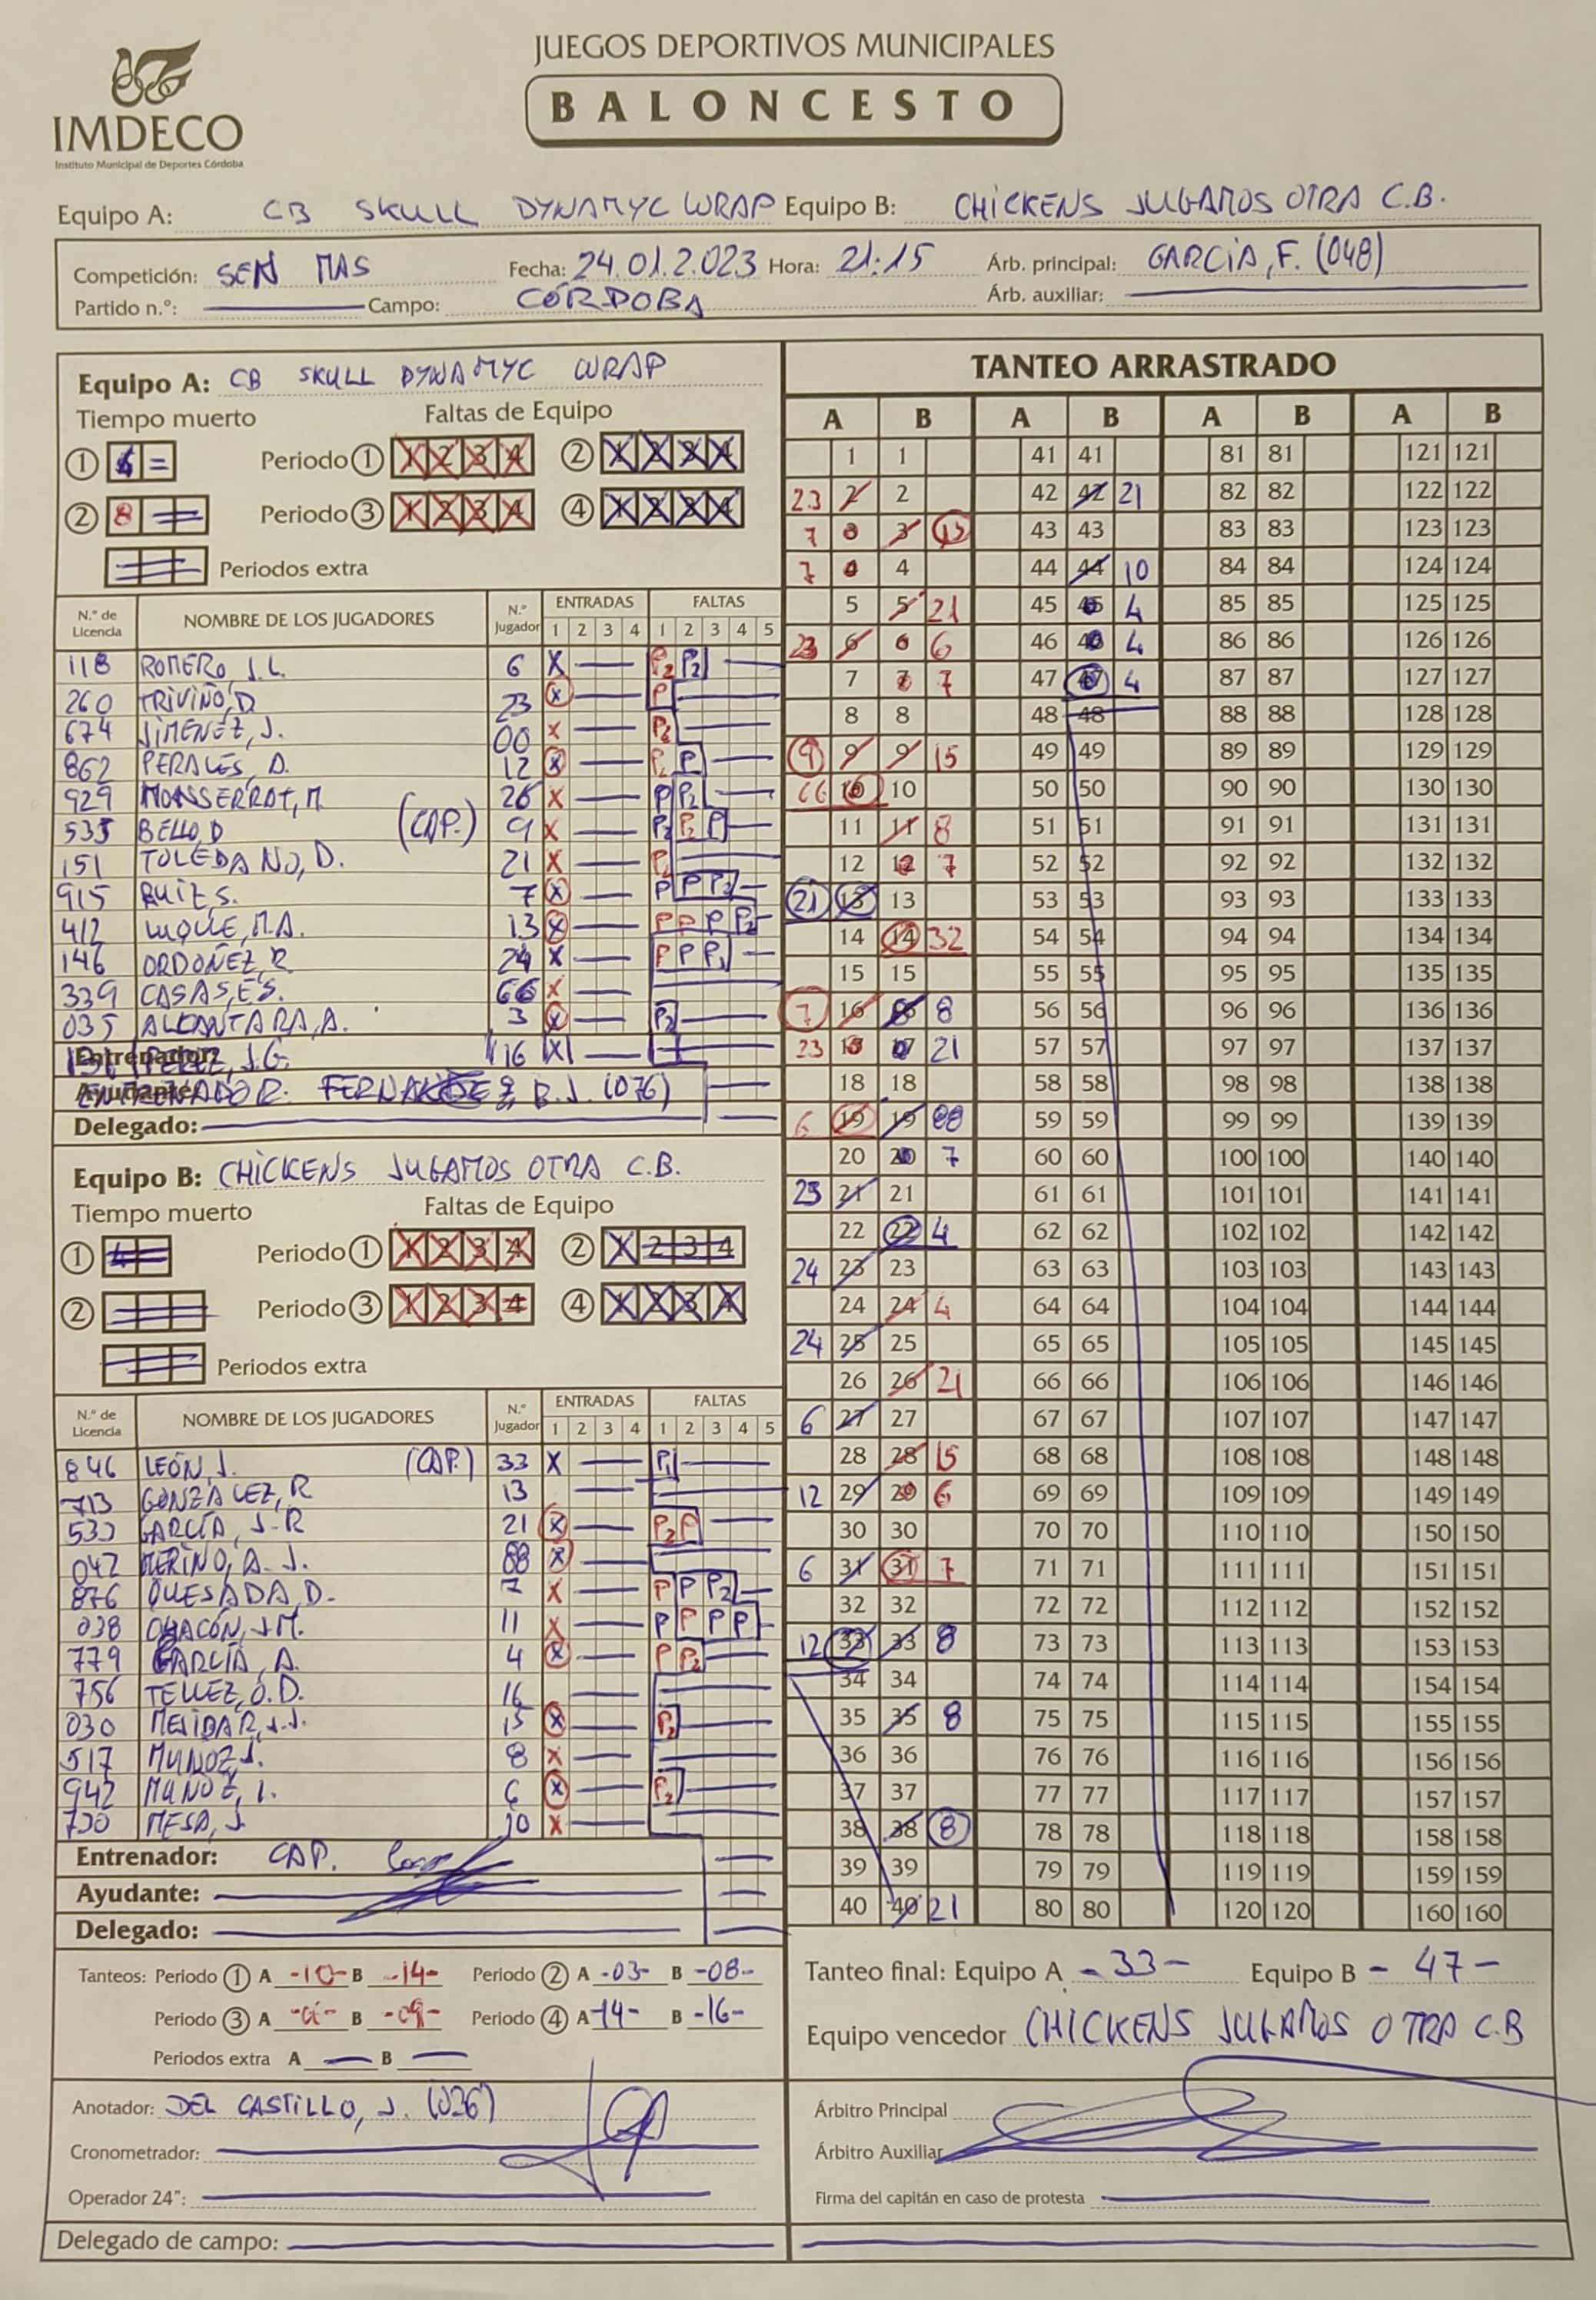 JUEGOS DEPORTIVOS MUNICIPALES
BALONCESTO
IMDECO
Instituto Municipal de Deportes Córdoba
Equipo A: CB SKULL DYNAMYC WRAP Equipo B: CHICKENS JUGAMOS OTRA C.B.
Competición: SEN MAS Fecha: 24.01.2.023 Hora: 21:15 Árb. principal: GARCÍA, F. (048)
Partido n.º: Campo: CÓRDOBA Árb. auxiliar:
Equipo A: CB SKULL DYNAMYC WRAP
Tiempo muerto Faltas de Equipo
1 6 = Periodo 1 1 2 3 4 2 1 2 3 4
2 8 Periodo 3 1 2 3 4 4 1 2 3 4
Periodos extra
N.º de Licencia NOMBRE DE LOS JUGADORES N.º Jugador ENTRADAS 1 2 3 4 FALTAS 1 2 3 4 5
118 ROMERO, J.L. 6 X P2 P2
260 TRIVIÑO, D 23 X P
674 JIMENEZ, J. 00 X
862 PERALES, D. 12 X P2 P
929 MONSERRAT, M. 26 X P P2
535 BELLO, D (CAP.) 9 X P2 P2 P
151 TOLEDANO, D. 21 X P2
915 RUIZ S. 7 X P P P2
412 LUQUE, M.A. 13 X P P P P2
146 ORDOÑEZ, R. 24 X P P P1
339 CASAS, E.S. 66 X
035 ALCANTARA, A. 3 X P2
Entrenador: PEREZ, J.G. 16 X
Ayudante: ENTRENADOR: FERNANDEZ, B.J. (076)
Delegado:
Equipo B: CHICKENS JUGAMOS OTRA C.B.
Tiempo muerto Faltas de Equipo
1 4 Periodo 1 1 2 3 4 2 X 2 3 4
2 Periodo 3 1 2 3 4 4 1 2 3 4
Periodos extra
N.º de Licencia NOMBRE DE LOS JUGADORES N.º Jugador ENTRADAS 1 2 3 4 FALTAS 1 2 3 4 5
846 LEÓN, J. (CAP.) 33 X P1
713 GONZALEZ, R 13
533 GARCÍA, J-R 21 X P2 P
042 MERINO, A.J. 88 X
876 QUESADA, D. 7 X P P P2
038 CHACÓN, J.M. 11 X P P P P
779 GARCÍA, A. 4 X P P2
756 TELLEZ, O.D. 16
030 MELIBAR, J.J. 15 X P2
517 MUÑOZ, J. 8 X
942 MUÑOZ, I. 6 X P2
730 MESA, J. 10 X
Entrenador: CAP.
Ayudante:
Delegado:
TANTEO ARRASTRADO
A B A B A B A B
1 1 41 41 81 81 121 121
23 2 2 42 42 21 82 82 122 122
7 3 3 15 43 43 83 83 123 123
7 4 4 44 44 10 84 84 124 124
5 5 21 45 45 4 85 85 125 125
23 6 6 6 46 46 4 86 86 126 126
7 7 7 47 47 4 87 87 127 127
8 8 48 48 88 88 128 128
9 9 9 15 49 49 89 89 129 129
66 10 10 50 50 90 90 130 130
11 11 8 51 51 91 91 131 131
12 12 7 52 52 92 92 132 132
21 13 13 53 53 93 93 133 133
14 14 32 54 54 94 94 134 134
15 15 55 55 95 95 135 135
7 16 16 8 56 56 96 96 136 136
23 17 17 21 57 57 97 97 137 137
18 18 58 58 98 98 138 138
6 19 19 88 59 59 99 99 139 139
20 20 7 60 60 100 100 140 140
23 21 21 61 61 101 101 141 141
22 22 4 62 62 102 102 142 142
24 23 23 63 63 103 103 143 143
24 24 4 64 64 104 104 144 144
24 25 25 65 65 105 105 145 145
26 26 21 66 66 106 106 146 146
6 27 27 67 67 107 107 147 147
28 28 15 68 68 108 108 148 148
12 29 29 6 69 69 109 109 149 149
30 30 70 70 110 110 150 150
6 31 31 7 71 71 111 111 151 151
32 32 72 72 112 112 152 152
12 33 33 8 73 73 113 113 153 153
34 34 74 74 114 114 154 154
35 35 8 75 75 115 115 155 155
36 36 76 76 116 116 156 156
37 37 77 77 117 117 157 157
38 38 8 78 78 118 118 158 158
39 39 79 79 119 119 159 159
40 40 21 80 80 120 120 160 160
Tanteos: Periodo 1 A -10- B -14- Periodo 2 A -03- B -08-
Periodo 3 A B -09- Periodo 4 A -14- B -16-
Periodos extra A B
Tanteo final: Equipo A - 33 - Equipo B - 47 -
Equipo vencedor CHICKENS JUGAMOS OTRA C.B
Anotador: DEL CASTILLO, J. (036)
Cronometrador:
Operador 24":
Árbitro Principal
Árbitro Auxiliar
Firma del capitán en caso de protesta
Delegado de campo: